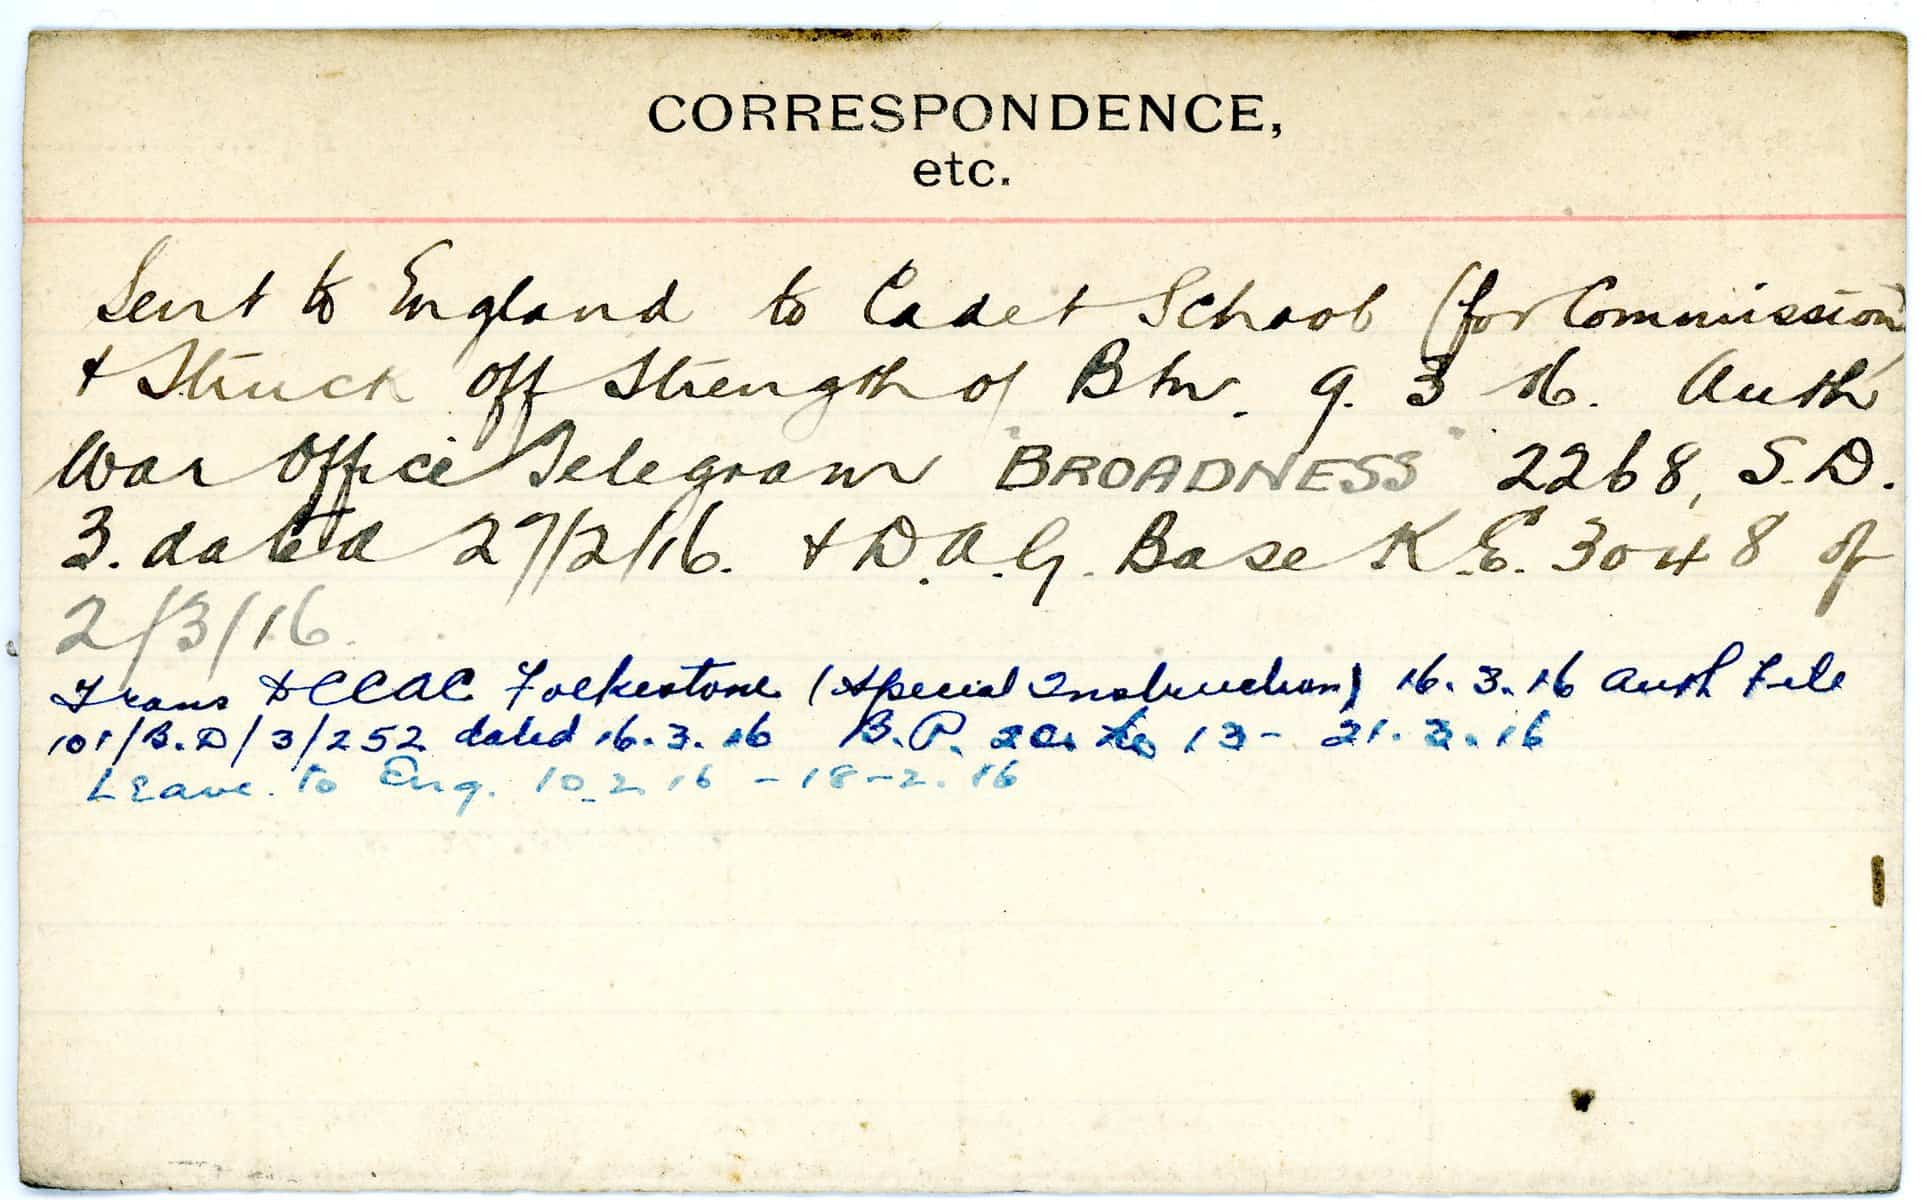 CORRESPONDENCE,
etc.
Sent to England to Cadet School (for Commission)
& Struck off Strength of Btn. 9. 3 16. Auth
War Office Telegram "BROADNESS" 2268, S.D.
3. dated 27/2/16. & D.A.G. Base K.E. 3048 of
2/3/16.
Trans to CCAC Folkestone (Special Instruction) 16.3.16 Auth File
101/B.D/3/252 dated 16.3.16 B.P. 13 - 21.3.16
Leave to Eng. 10_2 16 - 18-2.16